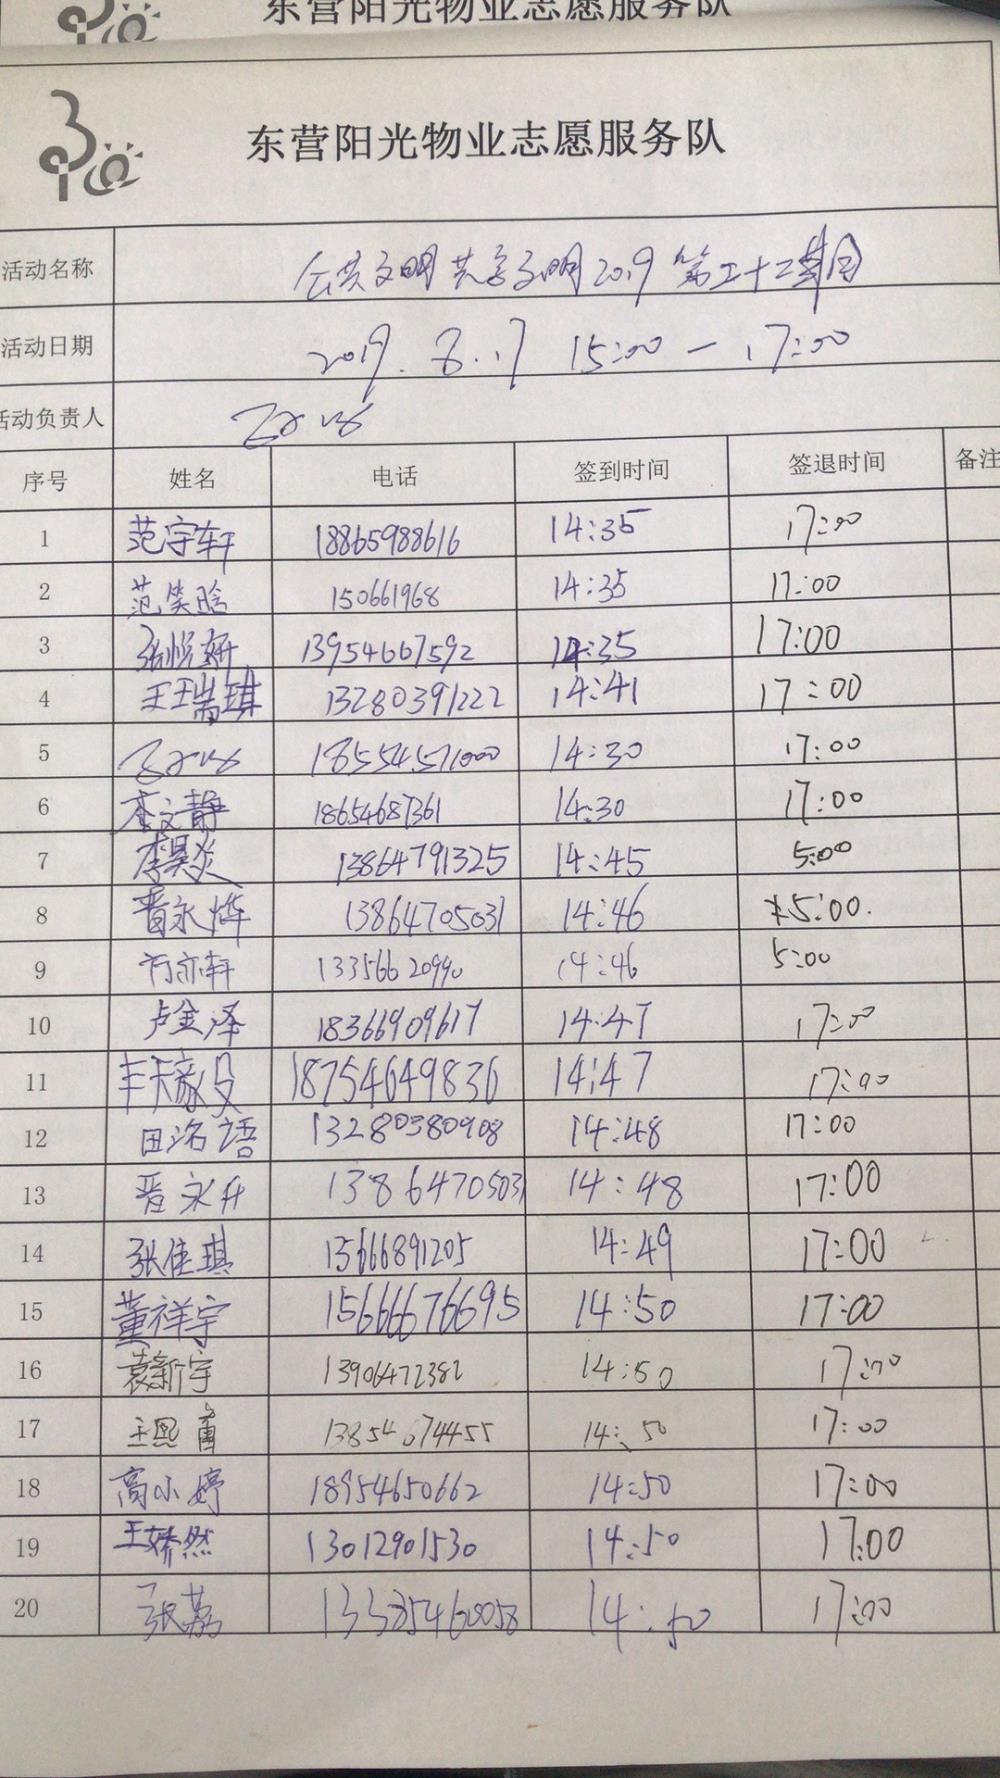 东营阳光物业志愿服务队
东营阳光物业志愿服务队
活动名称 公共文明共享文明2019第三十二期
活动日期 2019.8.17 15:00-17:00
活动负责人
序号 姓名 电话 签到时间 签退时间 备注
1 范宇轩 18865988616 14:35 17:00
2 范笑晗 150661968 14:35 17:00
3 张悦妍 13954667592 14:35 17:00
4 王瑞琪 13280391222 14:41 17:00
5 18554571000 14:30 17:00
6 李文静 18654687361 14:30 17:00
7 李昊炎 13864791325 14:45 5:00
8 晋永烨 13864705031 14:46 5:00.
9 亦轩 14:46 5:00
10 卢金泽 18366909617 14:47 17:00
11 18754649836 14:47 17:00
12 田洺语 13280380908 14:48 17:00
13 晋永升 13864705031 14:48 17:00
14 张佳琪 15666891205 14:49 17:00
15 董祥宇 15666676695 14:50 17:00
16 袁新宇 13906472382 14:50 17:00
17 王熙 13854674455 14:50 17:00
18 高小婷 18954650662 14:50 17:00
19 王娇然 13012901530 14:50 17:00
20 张荔 14:50 17:00